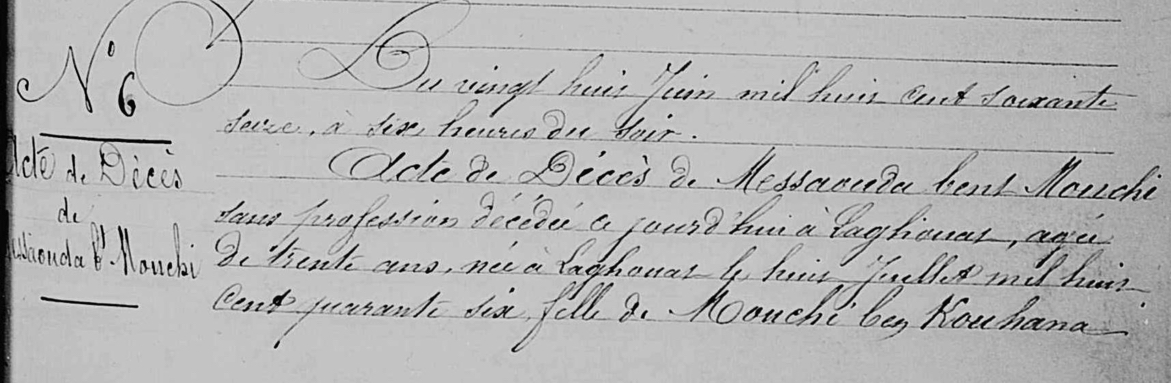 N° 6
Acte de Décès
de
Messaouda bt Mouchi
Du vingt huit Juin mil huit cent soixante
seize, à six heures du soir.
Acte de Décès de Messaouda bent Mouchi
sans profession décédée ce jourd'hui à Laghouat, agée
de trente ans, née à Laghouat le huit Juillet mil huit
cent quarante six, fille de Mouchi ben Kouhana